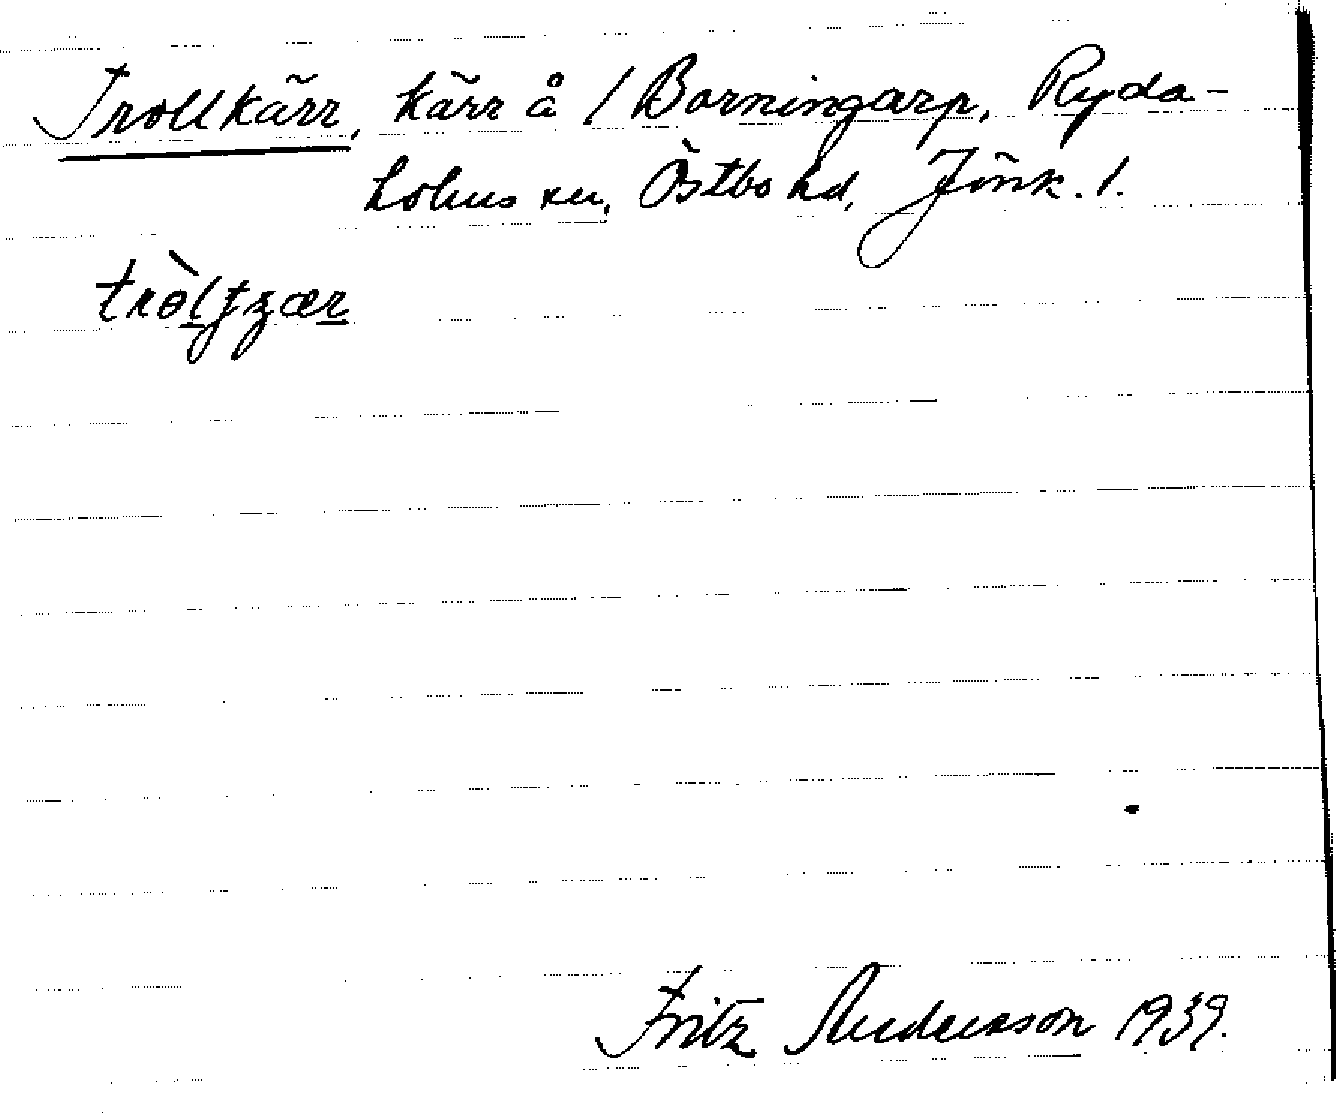 Trollkärr, kärr å / Borningarp, Ryda-
holms sn, Östbo hd, Jönk. l.
Fritz Andersson 1939.